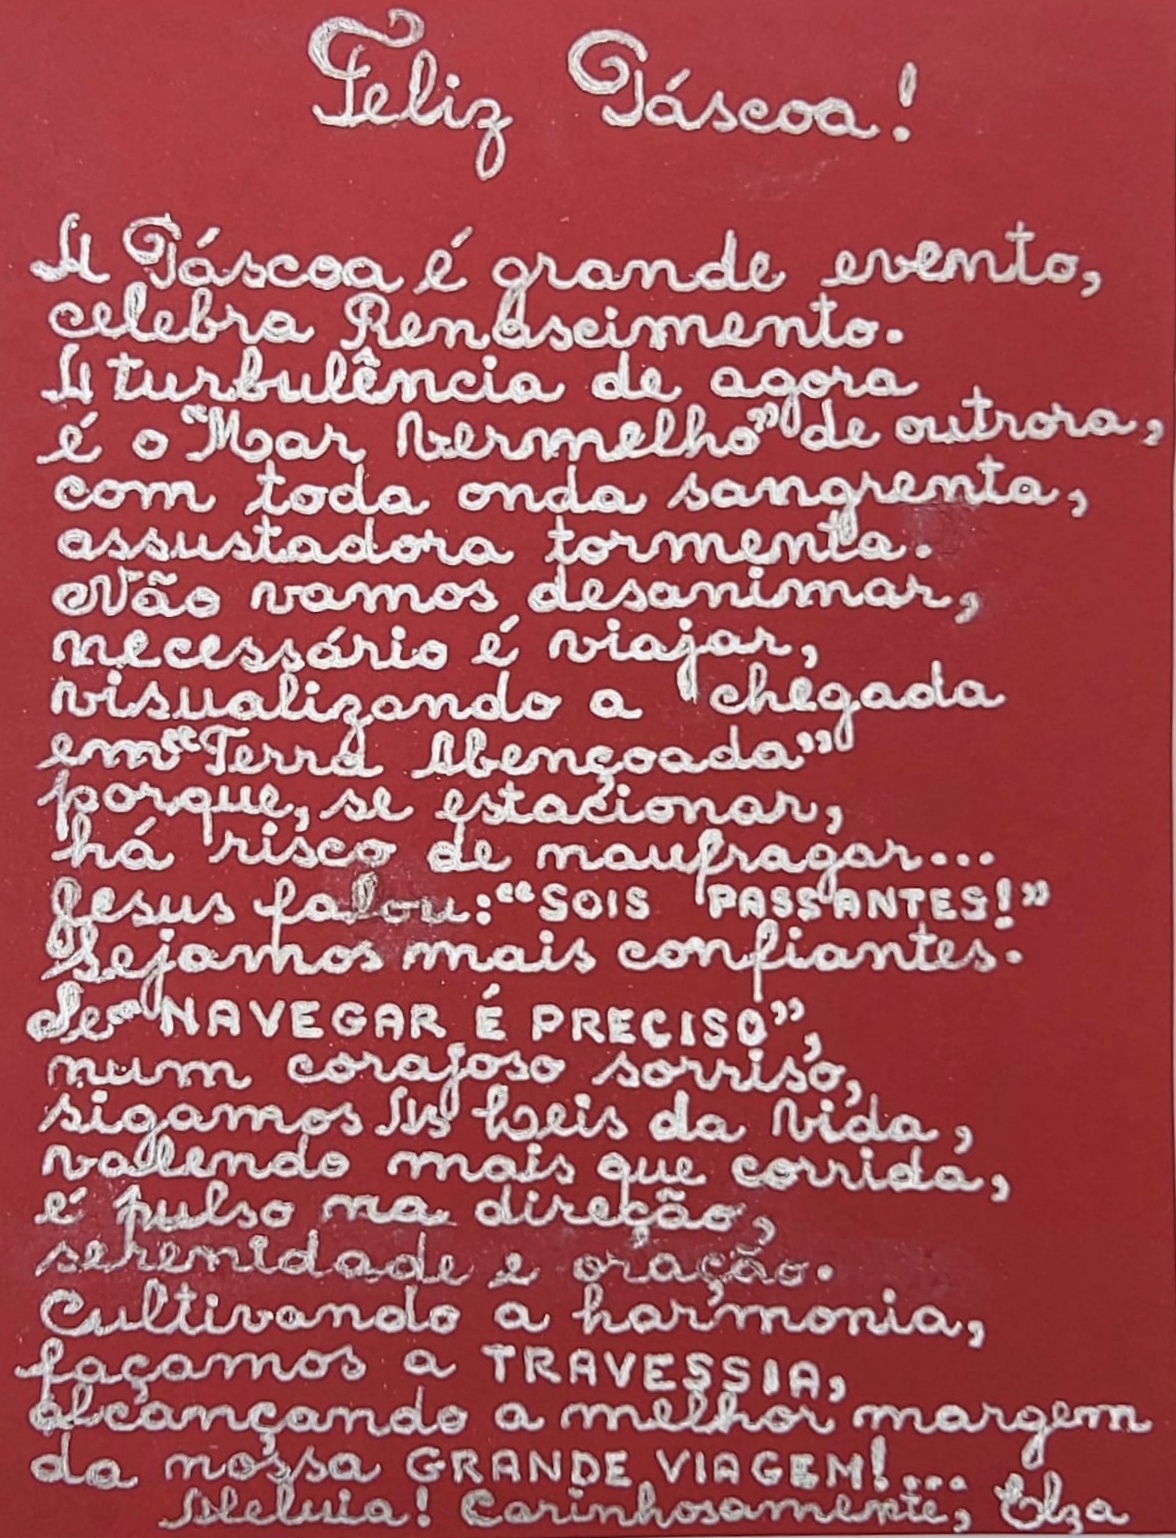 Feliz Páscoa!
A Páscoa é grande evento,
celebra Renascimento.
A turbulência de agora
é o "Mar Vermelho" de outrora,
com toda onda sangrenta,
assustadora tormenta.
Não vamos desanimar,
necessário é viajar,
visualizando a chegada
em "Terra Abençoada"
porque, se estacionar,
há risco de naufragar...
Jesus falou: "SOIS PASSANTES!"
Sejamos mais confiantes.
Se "NAVEGAR É PRECISO",
num corajoso sorriso,
sigamos As Leis da Vida,
valendo mais que corrida,
é pulso na direção,
serenidade e oração.
Cultivando a harmonia,
façamos a TRAVESSIA,
alcançando a melhor margem
da nossa GRANDE VIAGEM!...
Aleluia! Carinhosamente, Elza